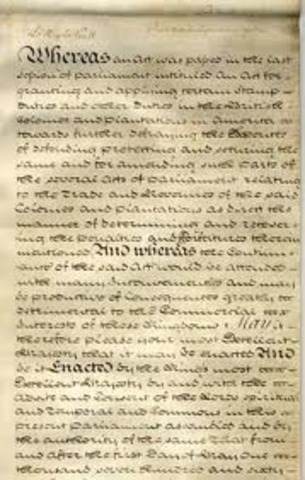 Whereas an Act was passed in the last
Session of parliament intituled An Act for
granting and applying certain Stamp
Duties and other Duties in the British
Colonies and Plantations in America
towards further defraying the Expences
of defending protecting and securing the
same and for amending such parts of
the several Acts of parliament relating
to the Trade and Revenues of the said
Colonies and Plantations as direct the
manner of determining and recover
ing the penalties and forfeitures therein
mentioned And whereas the Continu
ance of the said Act would be attended
with many Inconveniencies and may
be productive of Consequences greatly
detrimental to the Commercial
Interests of these Kingdoms May it
therefore please your most Excellent
Majesty that it may be enacted And
be it Enacted by the Kings most
Excellent Majesty by and with the
advice and Consent of the Lords spiritual
and Temporal and Commons in this
present parliament assembled and by
the authority of the same That from
and after the first Day of May One
thousand seven hundred and sixty